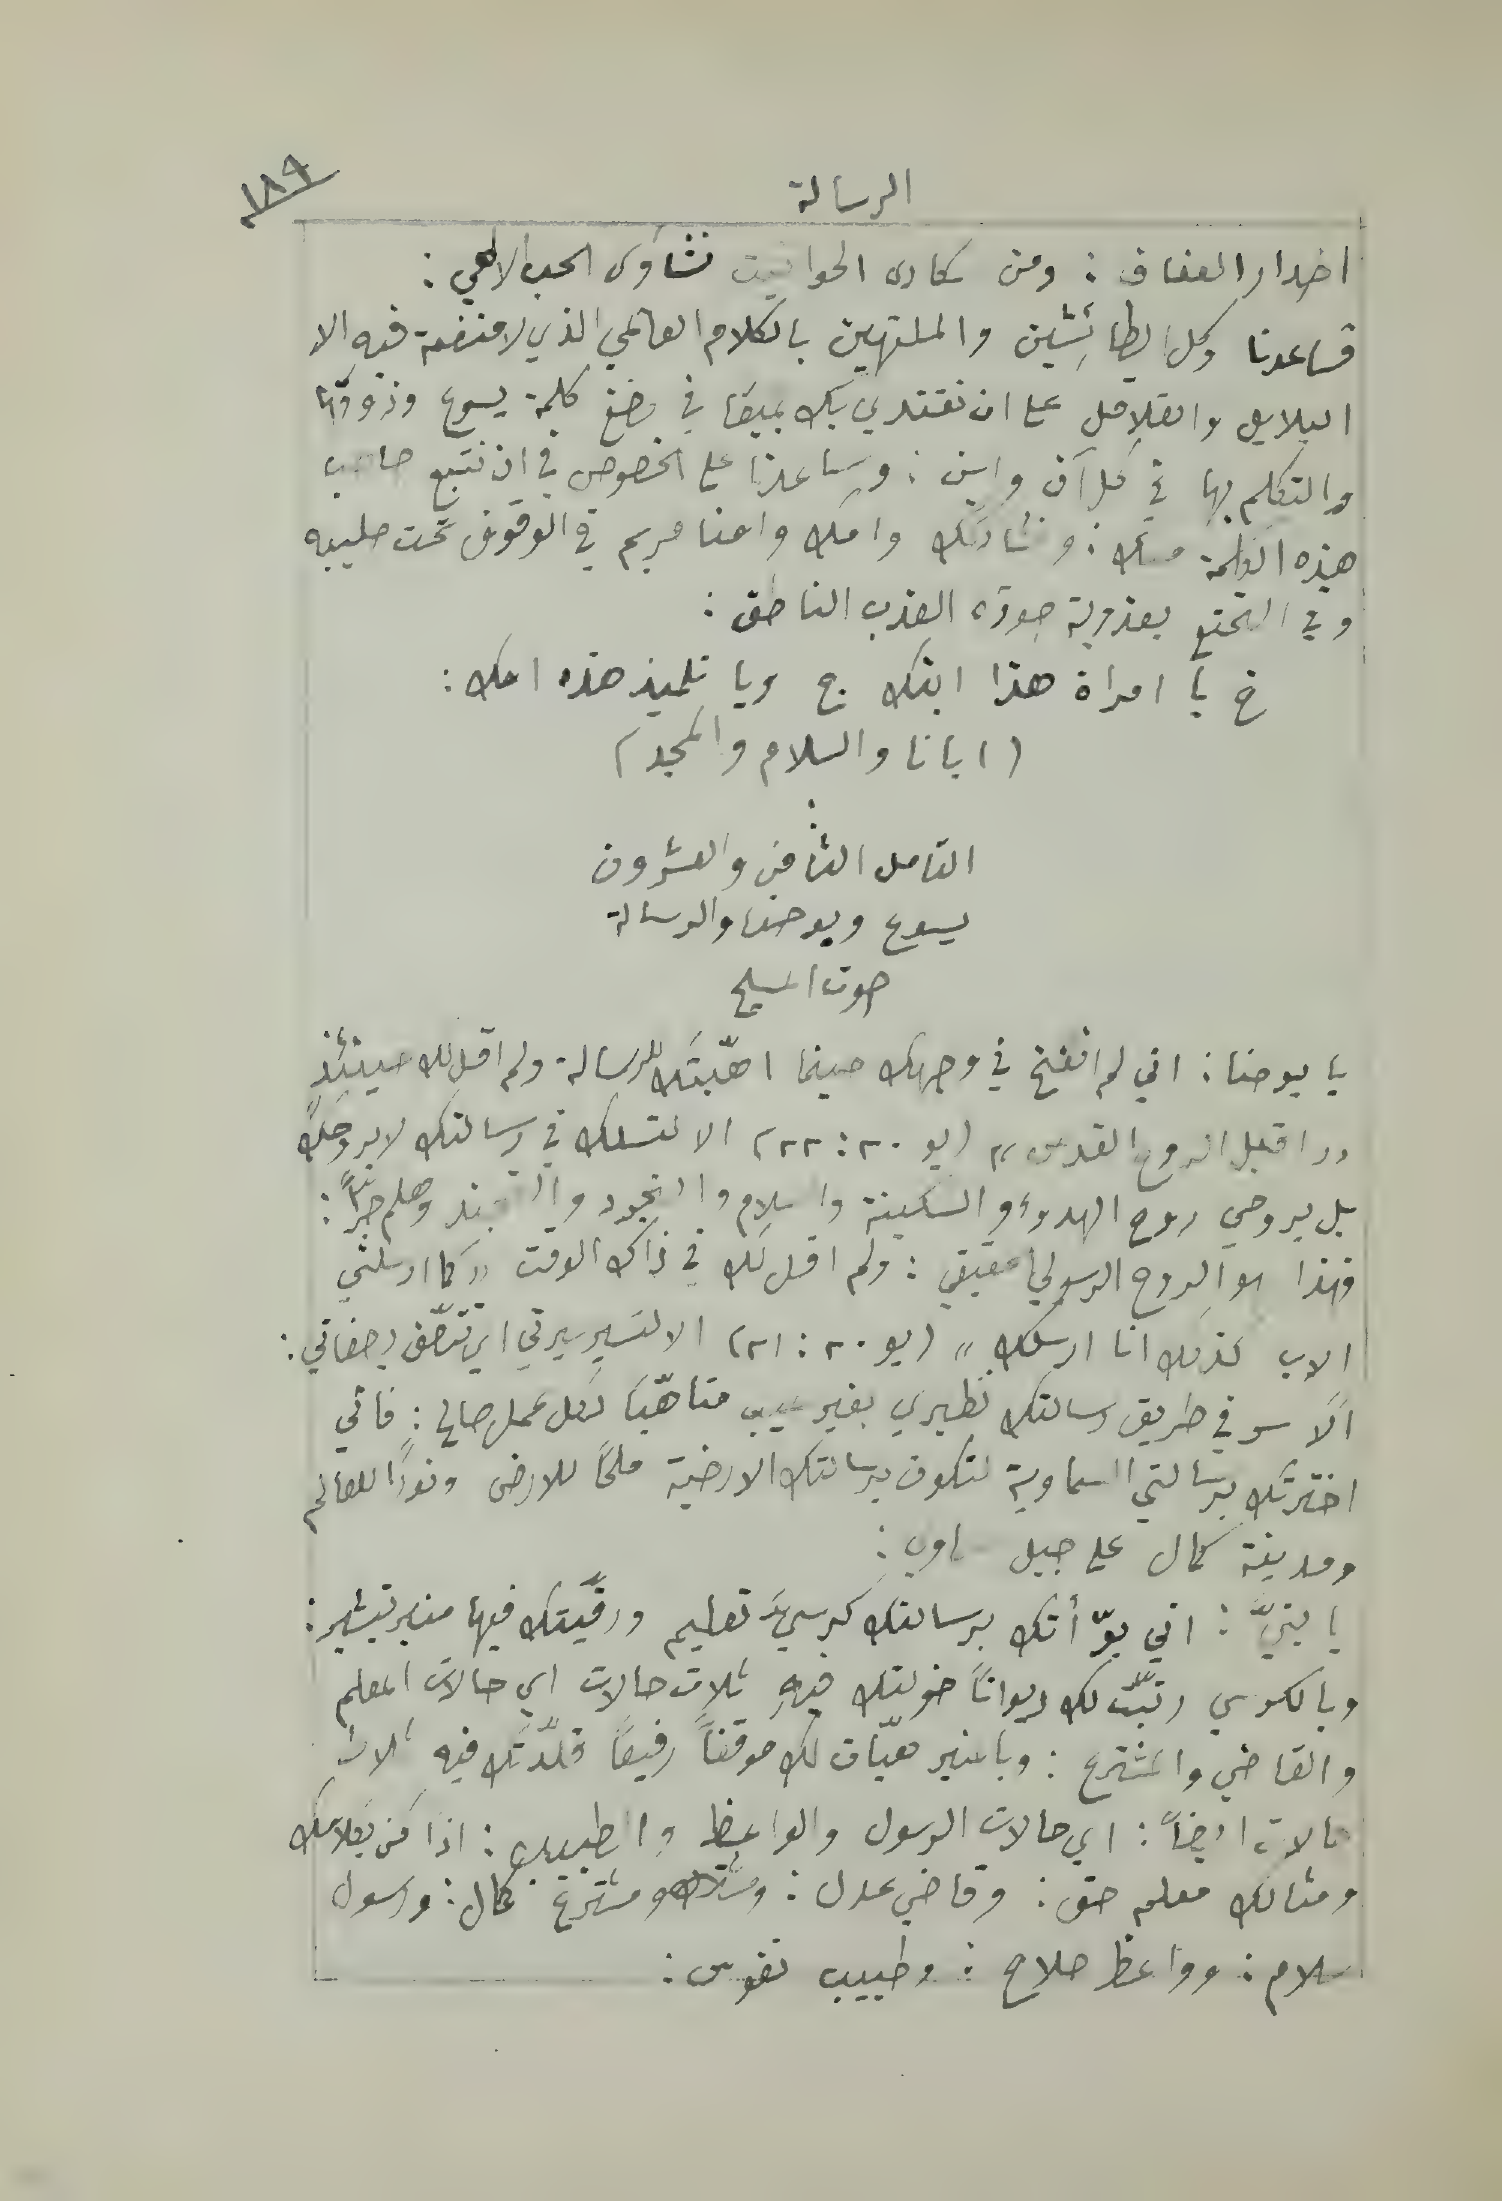 الرسالة
١٨٩
اخدار العفاف : ومن سكارى الحوانيت نشاوى الحب الالهي :
فساعدنا وكل الطائشين والملتهين بالكلام العالمي الذي لا منفعة فيه الا
البلابل والقلاقل على ان نقتدي بك بميقا في مضغ كلمة يسوع وذوقها
والتكلم بها في كل آن واين : وساعدنا على الخصوص في ان نتبع صاحب
هذه الكلمة مثلك : ونشاركك وامك وامنا مريم في الوقوف تحت صليبه
وفي التمتع بعذوبة صوته العذب الناطق :
خ يا امراة هذا ابنك ج ويا تلميذ هذه امك :
(ابانا والسلام والمجد)
التامل الثامن والعشرون
يسوع ويوحنا والرسالة
صوت المسيح
يا يوحنا : اني لم انفخ في وجهك حينما اهّبتك للرسالة ولم اقل لك حينئذٍ
«اقبل الروح القدس» (يو ٢٠ : ٢٢) الا لتسلك في رسالتك لا بروحك
بل بروحي روح الهدوء والسكينة والسلام والتجرد وهلم جرّاً :
فهذا هو الروح الرسولي الحقيقي : ولم اقل لك في ذاك الوقت «كما ارسلني
الاب كذلك انا ارسلك» (يو ٢٠ : ٢١) الا لتسير سيرتي اي تتصّف بصفاتي :
الا سر في طريق رسالتك نظيري بغير عيب متاهّباً لكل عمل صالح : فاني
اخترتك برسالتي السماوية لتكون برسالتك الارضية ملحاً للارض ونوراً للعالم
ومدينة كمال على جبل سماوي :
يا بنيّ : اني بوّأتك برسالتك كرسيَّ تعليم ورقّيتك فيها منبر تبشير :
وبالكرسي رتبّت لك ديواناً خولتك فيهِ ثلاث حالات اي حالات المعلم
والقاضي والمشترع : وبالمنبر هيّات لك موقفاً رفيعاً قلّدتك فيه ثلاث
حالات ايضاً : اي حالات الرسول والواعظ والطبيب : اذاً كن بكلامك
ومثالك معلم حق : وقاضي عدل : ومشترع كمال : ورسول
سلام : وواعظ صلاح : وطبيب نفوس :